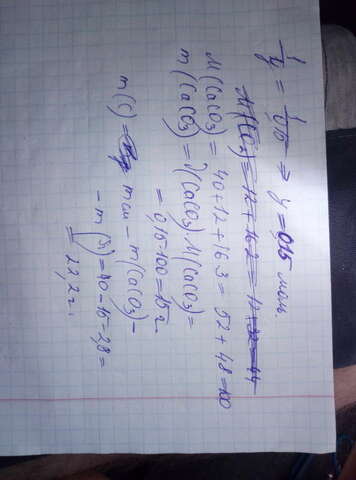 1/y = 1/0,15 ⇒ y = 0,15 моль
M(CO₂) = 12 + 16·2 = 12 + 32 = 44
M(CaCO₃) = 40 + 12 + 16·3 = 52 + 48 = 100
m(CaCO₃) = ν(CaCO₃)·M(CaCO₃) =
= 0,15·100 = 15 г
m(C) = m см - m(CaCO₃) -
- m(Si) = 40 - 15 - 2,8 =
= 22,2 г.